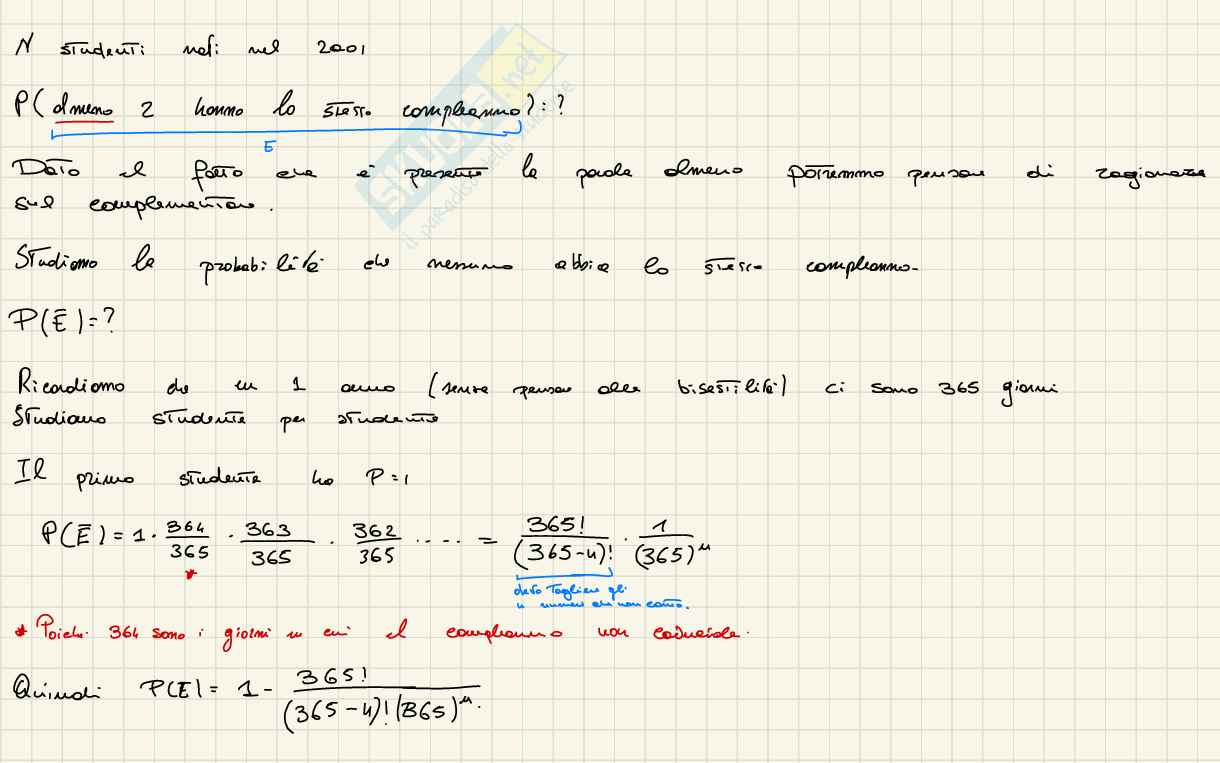 N studenti nati nel 2001
P(almeno 2 hanno lo stesso compleanno) = ?
E
Dato il fatto che è presente la parola almeno potremmo pensare di ragionare
sul complementare.
Studiamo la probabilità che nessuno abbia lo stesso compleanno.
P(Ē) = ?
Ricordiamo che in 1 anno (senza pensare alla bisestilità) ci sono 365 giorni
Studiamo studente per studente
Il primo studente ha P = 1
P(Ē) = 1 · 364/365 · 363/365 · 362/365 · · · · = 365!/(365-n)! · 1/(365)^n
*
devo togliere gli
n numeri che non conto.
* Poiché 364 sono i giorni in cui il compleanno non coincide.
Quindi P(E) = 1 - 365!/(365-n)!(365)^n.
SKUOLA.net
il paradiso dello studente